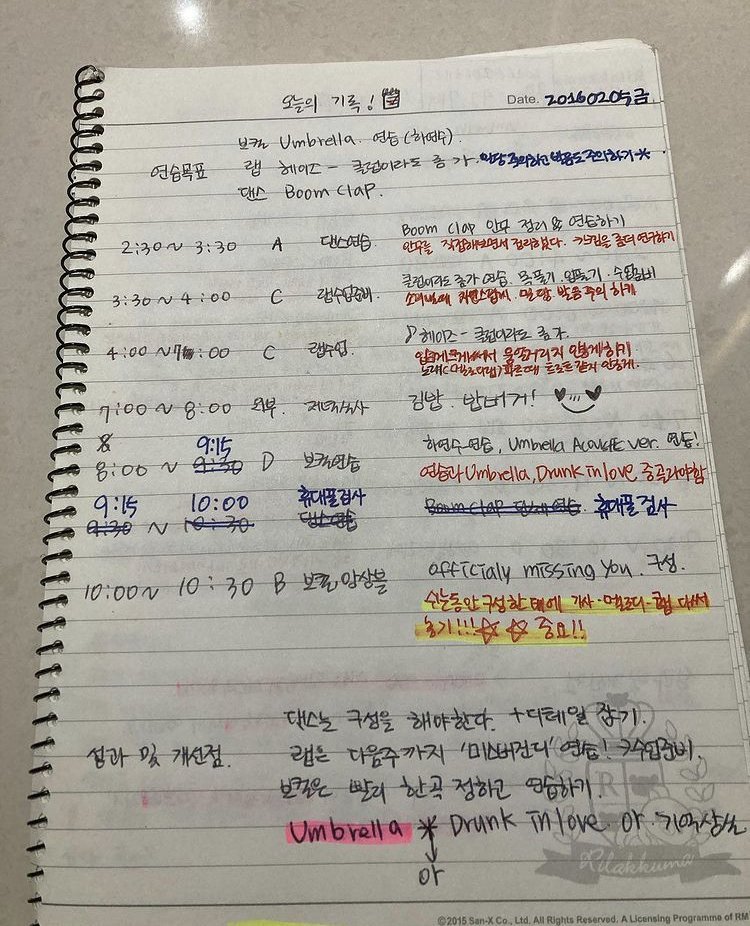 오늘의 기록!
Date. 20160205금
보컬 Umbrella 연습 (하연수).
연습목표 랩 헤이즈 - 클럽이라도 좀 가. 밀당 주의하고 발음도 주의하기*
댄스 Boom clap.
2:30~3:30 A 댄스연습. Boom clap 안무 정리 & 연습하기
안무를 직접해보면서 정리했다. 좀더 연구하기
3:30~4:00 C 랩수업준비. 클럽이라도 좀 가 연습. 목풀기. 입풀기. 수업준비
밀당, 발음주의 하기
4:00~7:00 C 랩수업. ♪헤이즈 - 클럽이라도 좀 가.
입 크게 웅얼거리지 안게 하기
트로트 같지 안하게.
7:00~8:00 외부. 저녁식사 김밥. 밥버거!
8:00~9:30 9:15 D 보컬연습 하연수 연습, Umbrella Acoustic ver. 연습!
연습과 Umbrella, Drunk in love 중 골라야함
9:15 10:00 휴대폴검사
9:30~10:30 댄스연습 Boom clap 댄스연습. 휴대폴검사
10:00~10:30 B 보컬앙상블 officialy missing you. 구성.
쉬는동안 구성한 태에 가사·멜로디·랩 다써
놓기!!!☆☆ 중요!!
댄스는 구성을 해야한다. +디테일 잡기.
성과 및 개선점. 랩은 다음주까지 '미스버건디' 연습! 수업준비.
보컬은 빨리 한곡 정하고 연습하기.
Umbrella * Drunk in love. or 기억상실
or
Rilakkuma
©2015 San-X Co., Ltd. All Rights Reserved. A Licensing Programme of RM